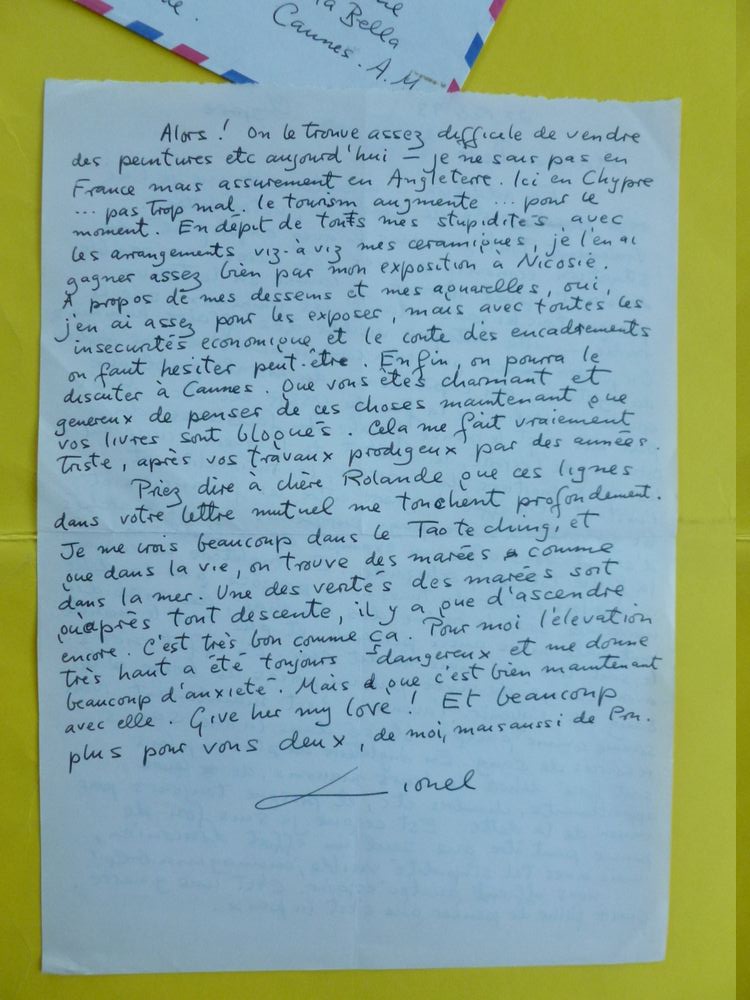 la Bella
Cannes. A.M
Alors ! On le trouve assez difficile de vendre
des peintures etc aujourd'hui – je ne sais pas en
France mais assurement en Angleterre. Ici en Chypre
... pas trop mal. le tourism augmente ... pour le
moment. En dépit de touts mes stupidités avec
les arrangements viz-à-viz mes ceramiques, je l'en ai
gagner assez bien par mon exposition à Nicosie.
A propos de mes dessins et mes aquarelles, oui,
j'en ai assez pour les exposer, mais avec toutes les
insecurités economique et le conte des encadrements
on faut hesiter peut-être. Enfin, on pourra le
discuter à Cannes. Que vous êtes charmant et
genereux de penser de ces choses maintenant que
vos livres sont bloqués. Cela me fait vraiement
triste, après vos travaux prodigeux par des années.
Priez dire à chère Rolande que ces lignes
dans votre lettre mutuel me touchent profondement.
Je me crois beaucoup dans le Tao te ching, et
que dans la vie, on trouve des marées comme
dans la mer. Une des verités des marées soit
qu'après tout descente, il y a que d'ascendre
encore. C'est très bon comme ça. Pour moi l'élevation
très haut a été toujours dangereux et me donne
beaucoup d'anxieté. Mais que c'est bien maintenant
avec elle. Give her my love ! Et beaucoup
plus pour vous deux, de moi, mais aussi de Pru.
Lionel